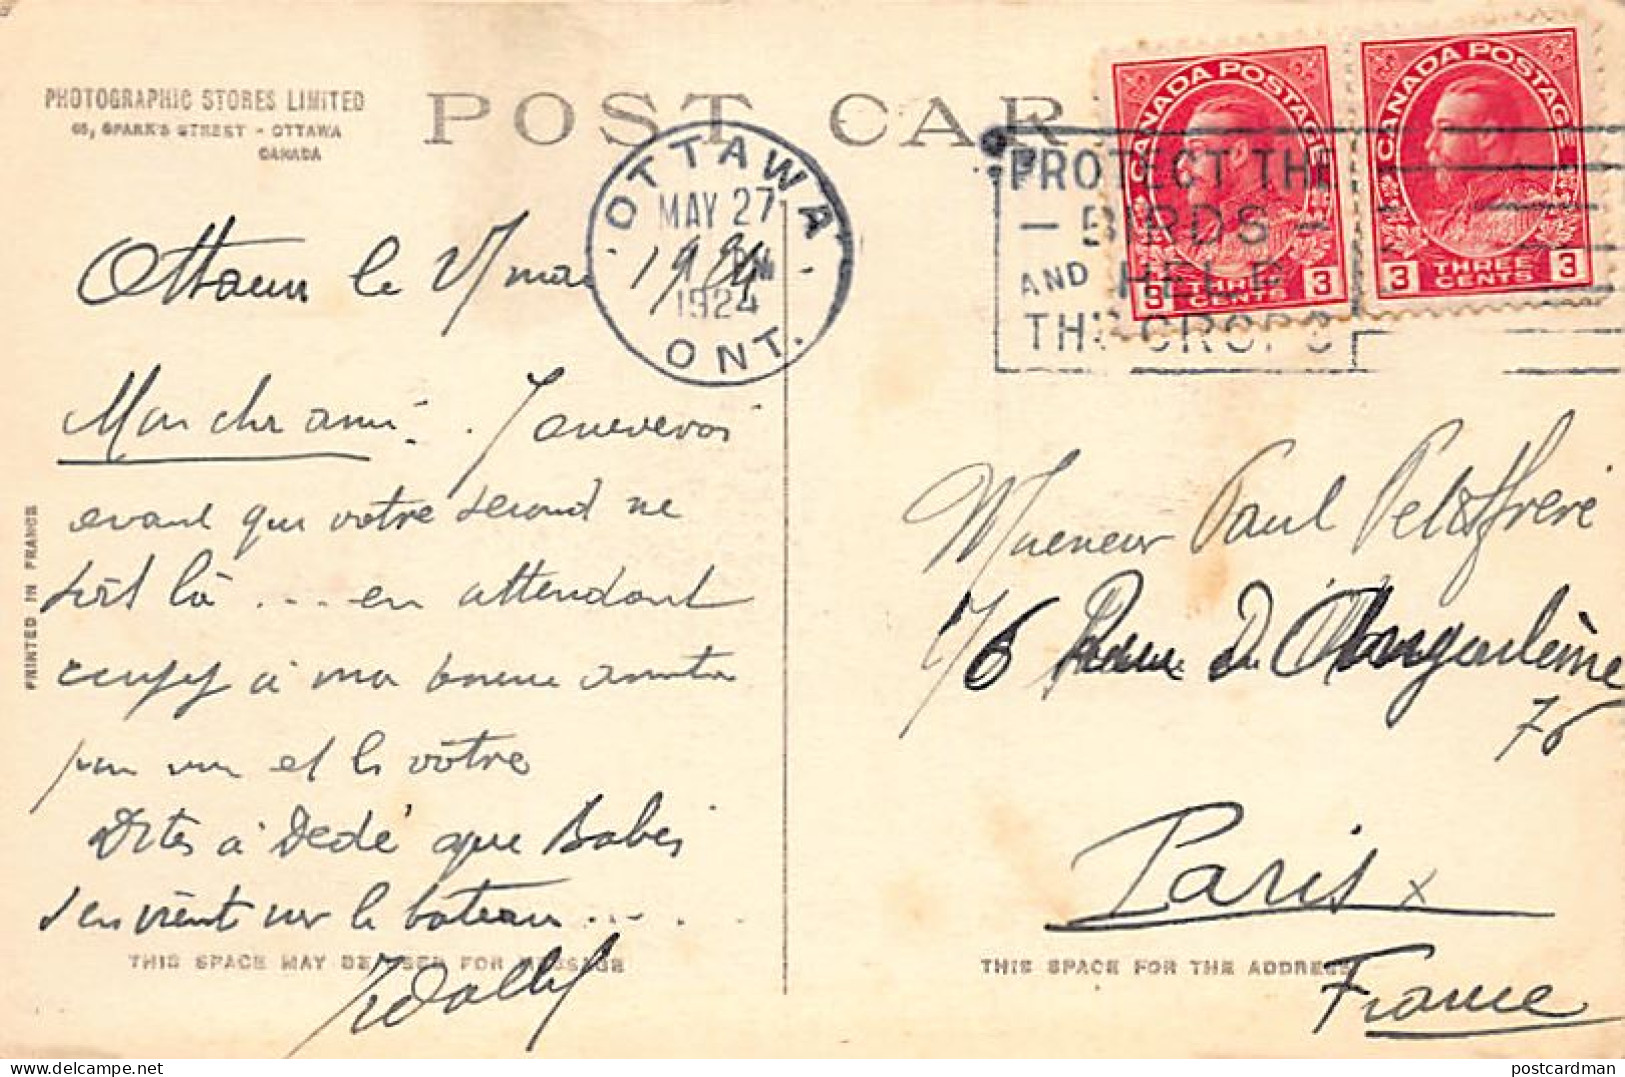 PHOTOGRAPHIC STORES LIMITED
65, SPARK'S STREET - OTTAWA
CANADA
POST CAR
OTTAWA
MAY 27
1924
ONT.
PROTECT THE
- BIRDS -
AND HELP
THE CROPS
CANADA POSTAGE
3 THREE CENTS 3
CANADA POSTAGE
3 THREE CENTS 3
Ottawa le mai 1924
Mon cher ami. J'arriverai
avant que votre second ne
soit là ... en attendant
à ma bonne
et la votre
Dites à Dédé que
s'en vient sur le bateau ....
PRINTED IN FRANCE
THIS SPACE MAY BE USED FOR MESSAGE
Monsieur Paul
76 Rue D'Angoulème
76
Paris
THIS SPACE FOR THE ADDRESS
France
postcardman